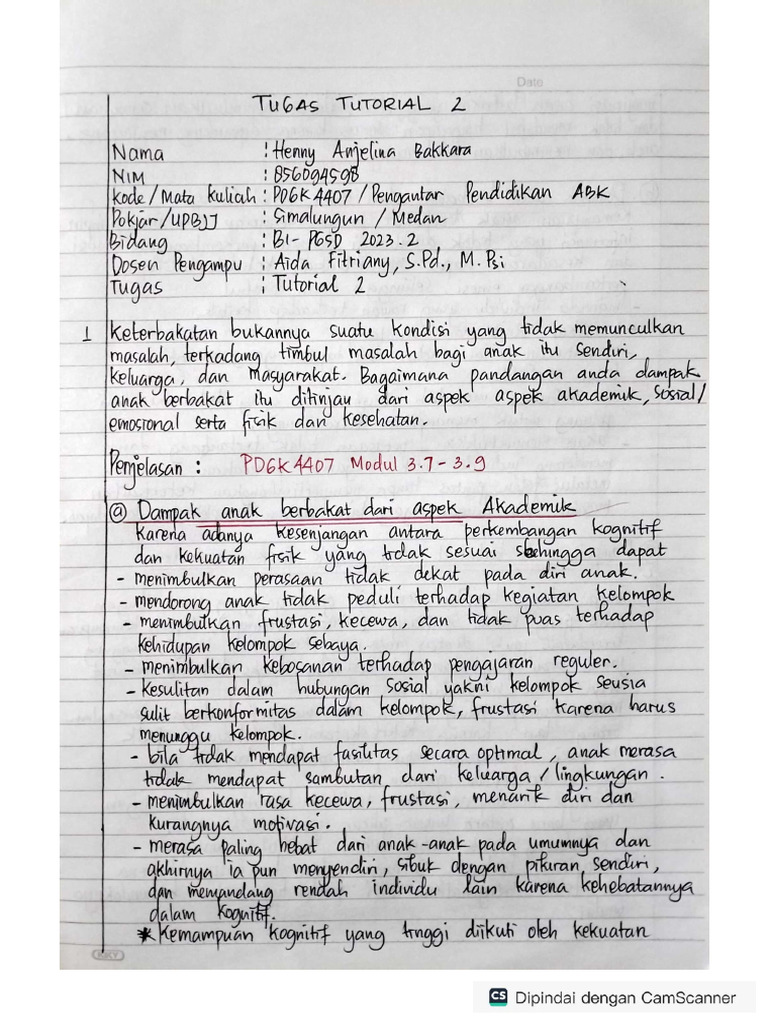 Date
TUGAS TUTORIAL 2
Nama : Henny Anjelina Bakkara
NIM : 856094598
Kode/Mata kuliah : PDGK4407/Pengantar Pendidikan ABK
Pokjar/UPBJJ : Simalungun / Medan
Bidang : BI- PGSD 2023.2
Dosen Pengampu : Aida Fitriany, S.Pd., M.Psi
Tugas : Tutorial 2
1 Keterbakatan bukannya suatu kondisi yang tidak memunculkan
masalah, terkadang timbul masalah bagi anak itu sendiri,
keluarga, dan Masyarakat. Bagaimana pandangan anda dampak
anak berbakat itu ditinjau dari aspek aspek akademik, sosial/
emosional serta fisik dan kesehatan.
Penjelasan : PDGK4407 Modul 3.7-3.9
ⓐ Dampak anak berbakat dari aspek Akademik
Karena adanya kesenjangan antara perkembangan kognitif
dan kekuatan fisik yang tidak sesuai sehingga dapat
- menimbulkan perasaan tidak dekat pada diri anak.
- mendorong anak tidak peduli terhadap kegiatan kelompok
- menimbulkan frustasi, kecewa, dan tidak puas terhadap
kehidupan kelompok sebaya.
- menimbulkan kebosanan terhadap pengajaran reguler.
- Kesulitan dalam hubungan sosial yakni kelompok seusia
sulit berkonformitas dalam kelompok, frustasi karena harus
menunggu kelompok.
- bila tidak mendapat fasilitas secara optimal, anak merasa
tidak mendapat sambutan dari keluarga/lingkungan.
- menimbulkan rasa kecewa, frustasi, menarik diri dan
kurangnya motivasi.
- merasa paling hebat dari anak-anak pada umumnya dan
akhirnya ia pun menyendiri, sibuk dengan pikiran sendiri,
dan memandang rendah individu lain karena kehebatannya
dalam kognitif.
* Kemampuan kognitif yang tinggi diikuti oleh kekuatan
KKY
CS Dipindai dengan CamScanner